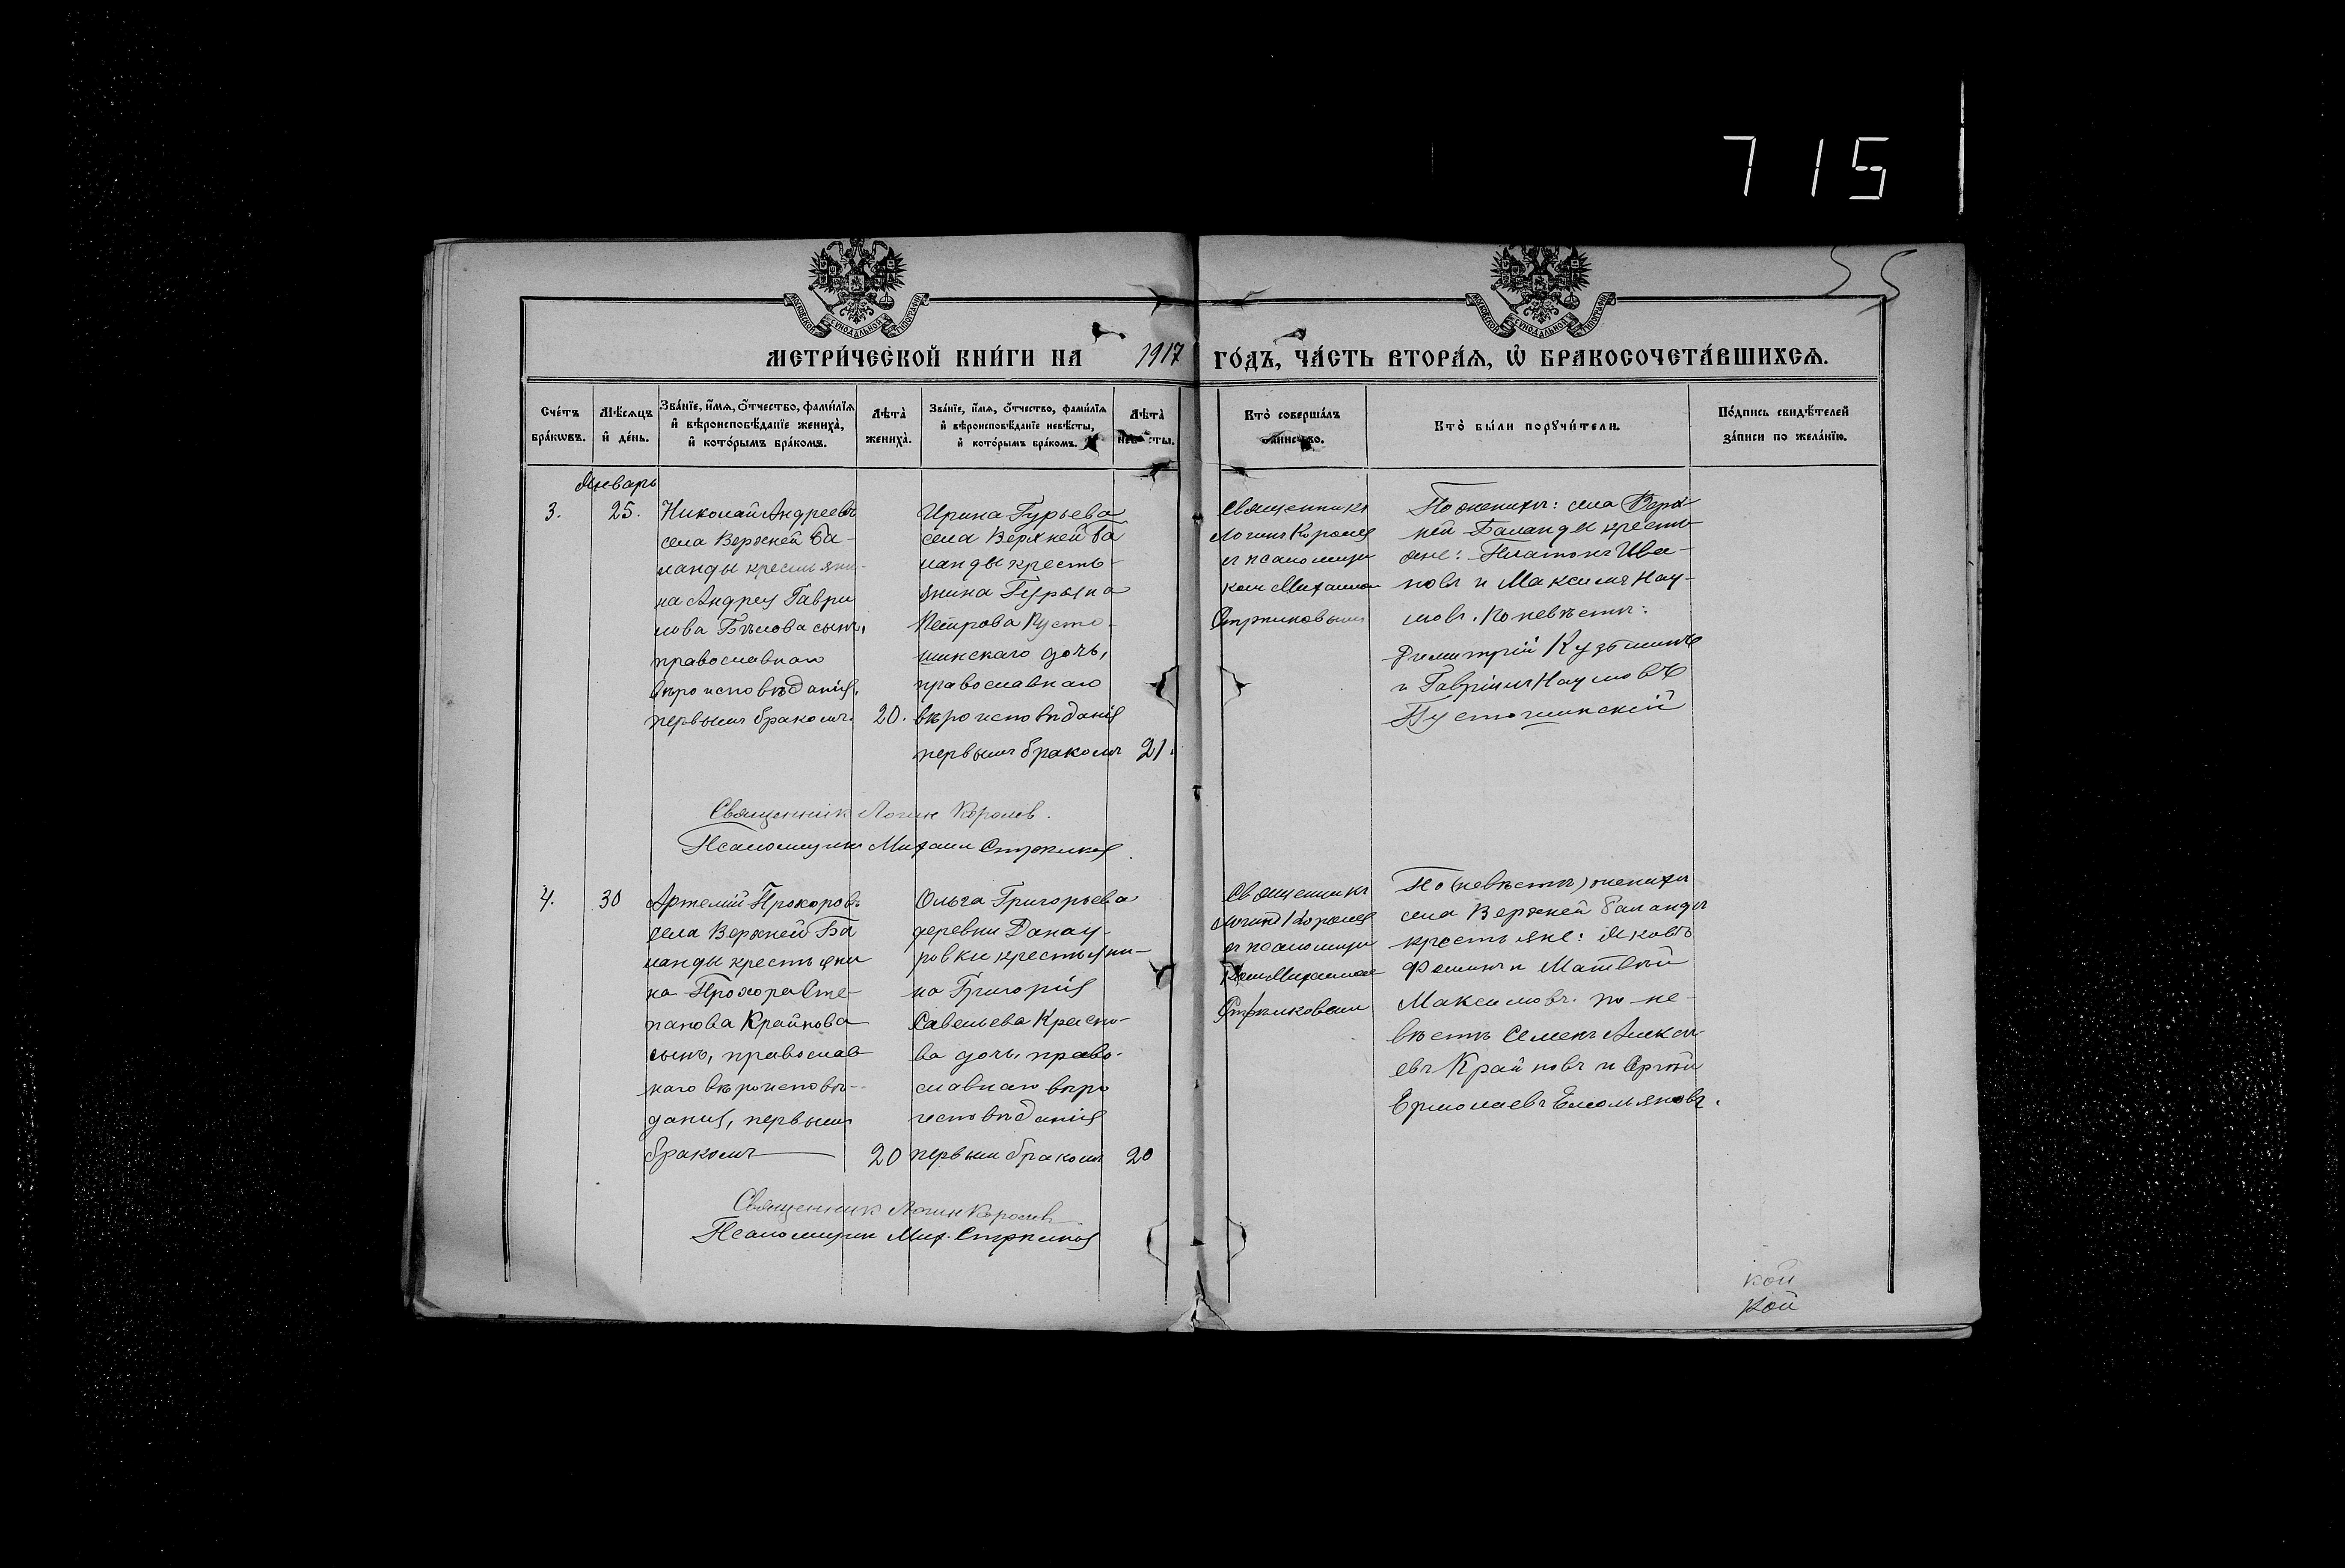 715
55
МОСКОВСКОЙ СѴНОДАЛЬНОЙ ТИПОГРАФІИ
МОСКОВСКОЙ СѴНОДАЛЬНОЙ ТИПОГРАФІИ
МЕТРИ́ЧЕСКОЙ КНИ́ГИ НА 1917 ГО́ДЪ, ЧА́СТЬ ВТОРА́Я, Ѡ҆ БРАКОСОЧЕТА́ВШИХСЯ.
Сче́тъ бра́кѡвъ.
Мѣ́сяцъ и҆ де́нь.
Зва́нїе, и҆́мя, ѻ҆́тчество, фами́лїя
и҆ вѣроисповѣ́данїе жениха̀,
и҆ кото́рымъ бра́комъ.
Лѣта̀ жениха̀.
Зва́нїе, и҆́мя, ѻ҆́тчество, фами́лїя
и҆ вѣроисповѣ́данїе невѣ́сты,
и҆ кото́рымъ бра́комъ.
Лѣта̀
Кто̀ соверша́лъ
Кто̀ бы́ли порꙋчи́тели.
По́дпись свидѣ́телей
за́писи по жела́нїю.
Январь
3.
25.
Николай Андреевъ
села Верхней Ба-
ланды крестьяни-
на Андрея Гаври
лова Бѣлова сынъ,
православнаго
вѣроисповѣданія,
первымъ бракомъ.
20.
Ирина Гурьева
села Верхней Ба
ланды кресть-
янина Гурьяна
Петрова Пусто-
шинскаго дочь,
православнаго
вѣроисповѣданія
первымъ бракомъ
21.
Священникъ
Логинъ Королев
съ псаломщи
комъ Михаиломъ
По женихѣ: села Верх
ней Баланды кресть
яне: Платонъ Ива-
новъ и Максимъ Нау-
мовъ. По невѣстѣ:
Димитрій Кузьминъ
и Гавріилъ Наумовъ
Пустошинскій
Священник Логин Королев.
Псаломщик Михаил
4.
30
Артемій Прохоровъ
села Верхней Ба
ланды крестьяни
на Прохора Сте-
панова Крайнова
сынъ, православ
наго вѣроисповѣ-
данія, первымъ
бракомъ
20
Ольга Григорьева
деревни Данау-
ровки крестьяни-
на Григорія
Савельева Красно-
ва дочь, право-
славнаго вѣро
исповѣданія
первым бракомъ
20
Священникъ
Логинъ Королев
съ псаломщи
комъ Михаиломъ
По (невѣстѣ) женихѣ
села Верхней Баланды
крестьяне: Яковъ
Фоминъ и Матвѣй
Максимовъ. по не-
вѣстѣ Семенъ Алексѣ-
евъ Крайновъ и Сергѣй
Ермолаевъ Емельяновъ.
Священник Логин Королев
Псаломщик Мих.
кой
кой